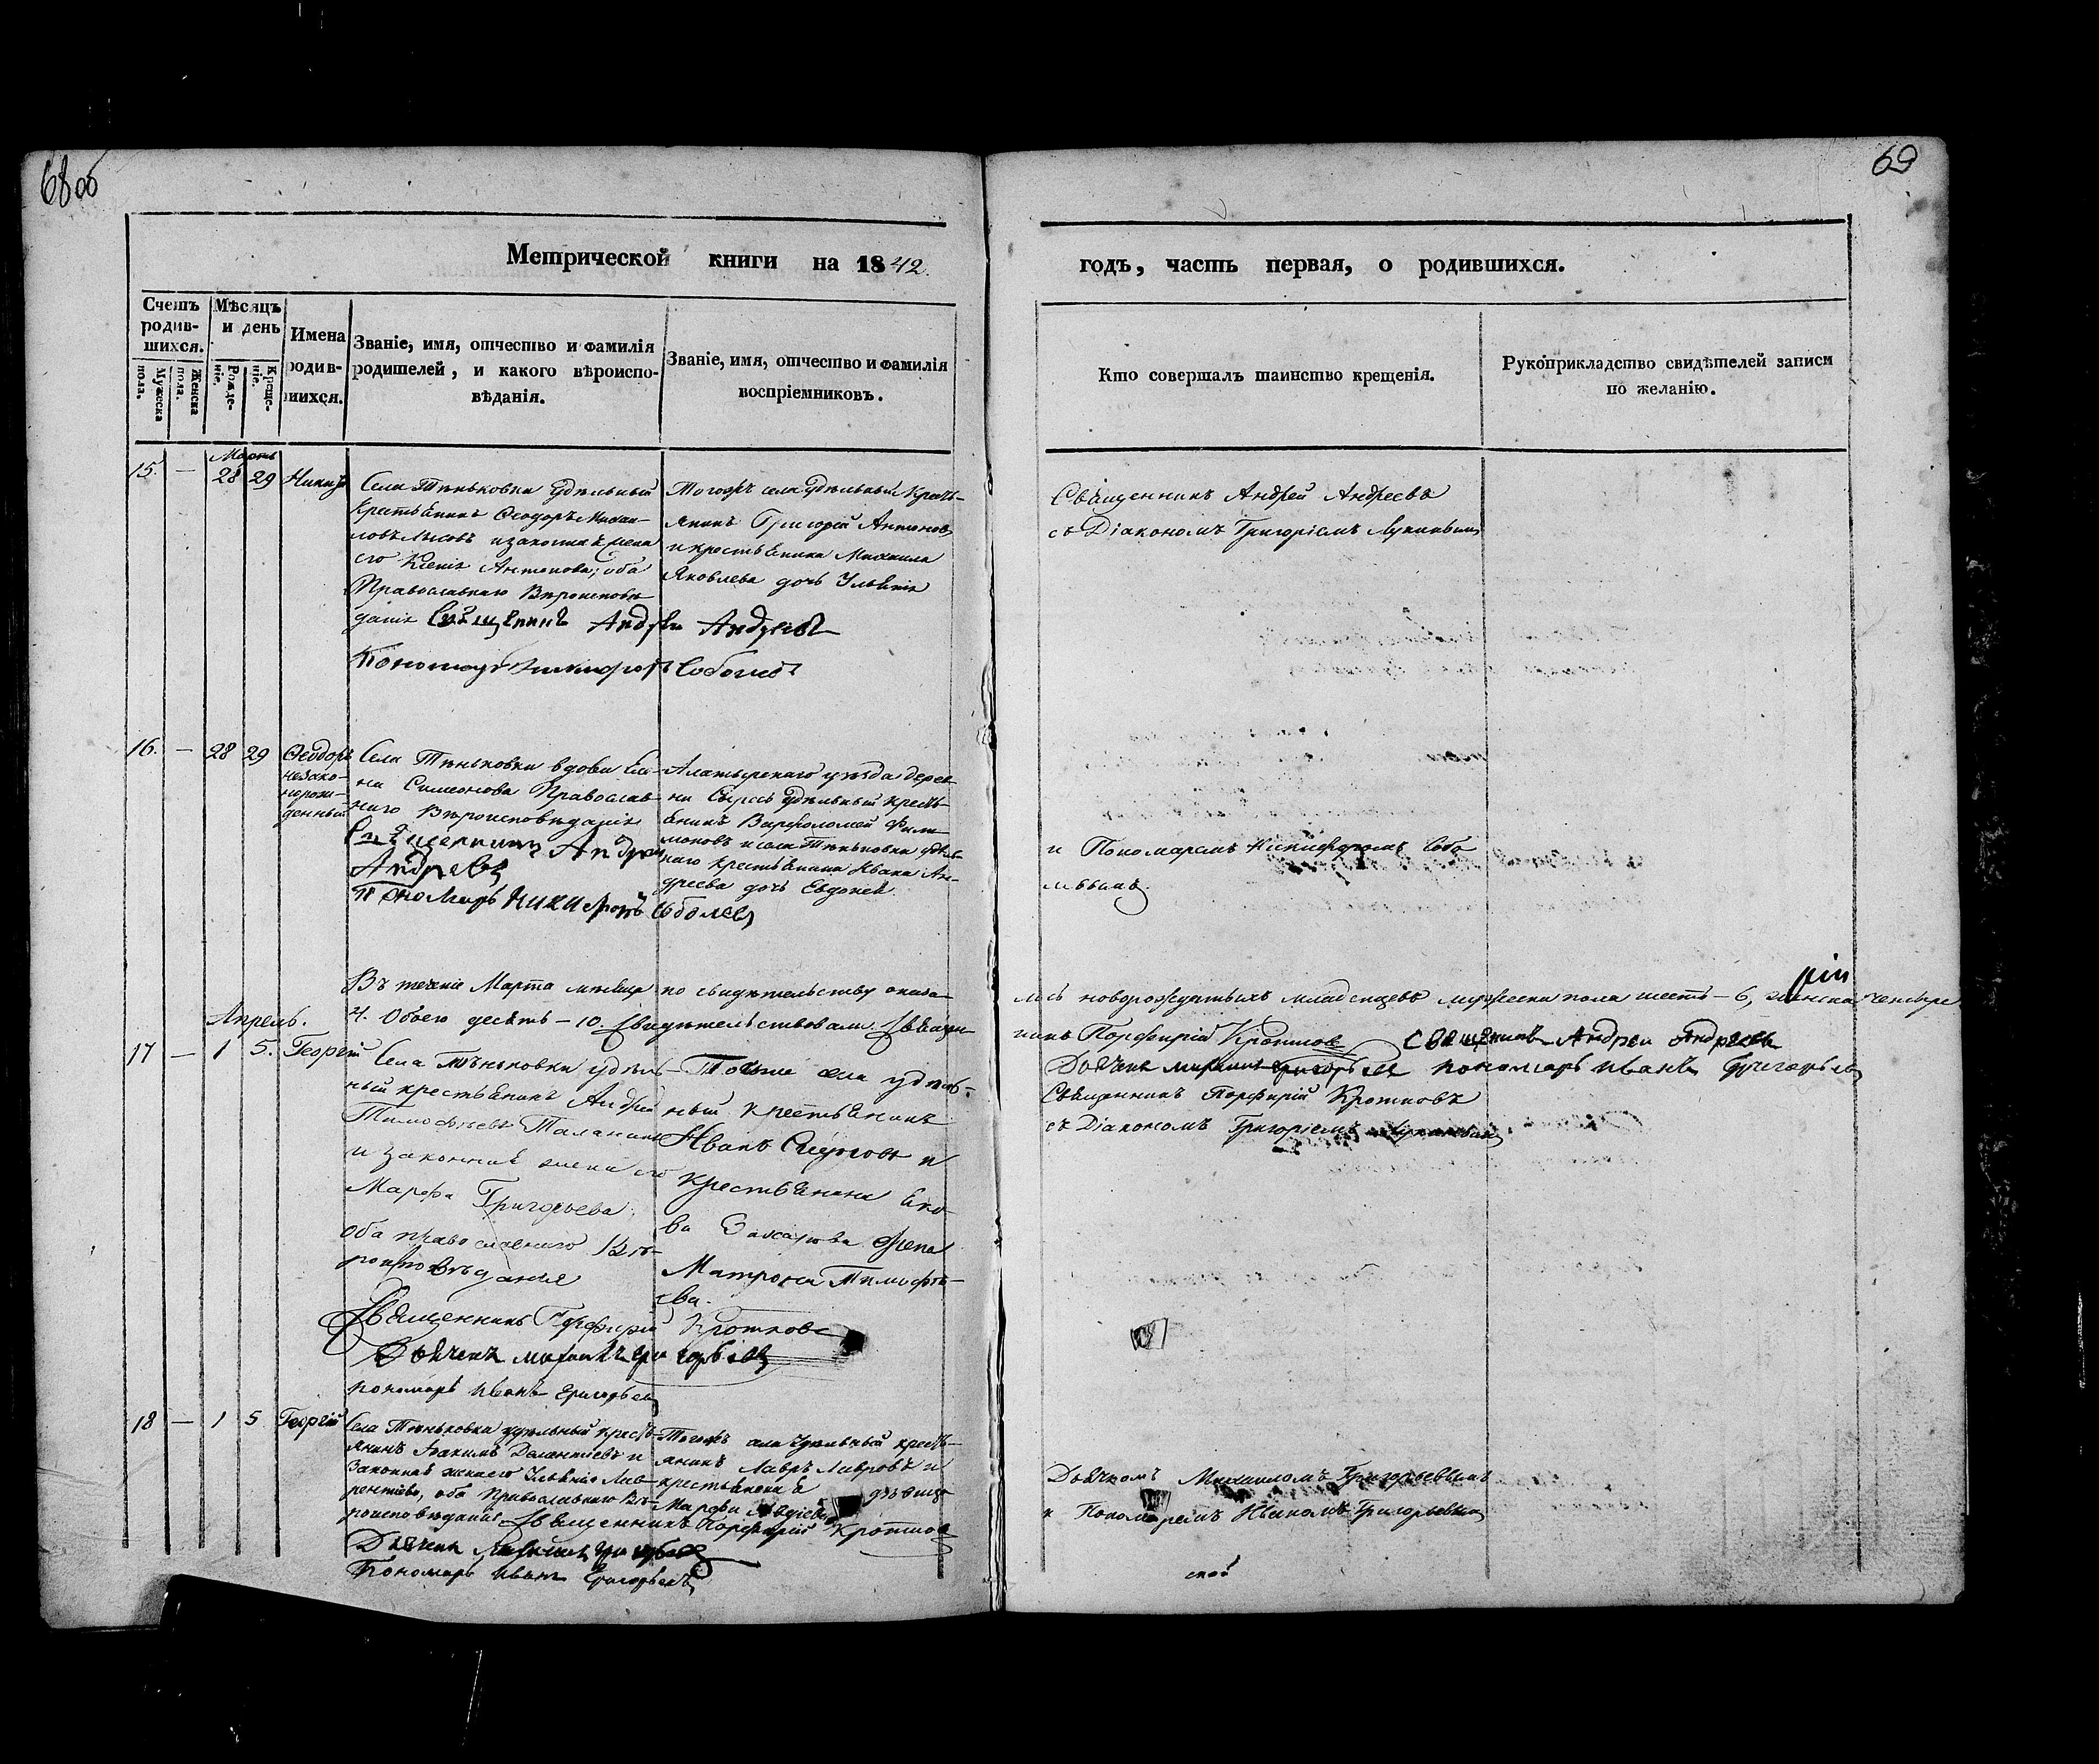 68 об
69
Метрической книги на 1842.
годъ, часть первая, о родившихся.
Счетъ родив-шихся.
Мужеска пола.
Женска пола.
Мѣсяцъ и день
Рожде-ніе.
Креще-ніе.
Имена родив-шихся.
Званіе, имя, отчество и фамилія
родителей, и какого вѣроиспо-
вѣданія.
Званіе, имя, отчество и фамилія
воспріемниковъ.
Кто совершалъ таинство крещенія.
Рукоприкладство свидѣтелей записи
по желанію.
Мартъ
15. — 28 29
Села Тѣньковки удѣльный
крестьянинъ Ѳеодоръ Михаи-
ловъ и законная жена
его Ксенія Антонова; оба
Православнаго Вѣроисповѣ
данія Священникъ Андрей Андреевъ
Тогожъ села удѣльный крестъ-
янинъ Григорій Антоновъ
и крестьянина Михаила
Яковлева дочь
Священникъ Андрей Андреевъ
съ Діакономъ Григоріемъ
16. — 28 29 Ѳеодоръ
незако-
норож-
денный
Села Тѣньковки вдова Еле-
на Симеонова Православ
наго Вѣроисповѣданія
Священникъ Андрей
Андреевъ
Пономарь Никифоръ Соболевъ
Алатырскаго уѣзда дерев
ни удѣльный кресть-
янинъ Варфоломей Фили
моновъ и села Тѣньковки удѣль
наго крестьянина Ивана Ан-
дреева дочь Евдокея
и Пономаремъ Никифоромъ Собо
левымъ.
Въ теченіе Марта мѣсяца по свидѣтельству оказа-
лось новорожденныхъ младенцевъ мужеска пола шесть — 6, женска четыре
4. Обоего десять — 10. Свидѣтельствовали: Священ
никъ Порфирій Кротковъ Священникъ Андрей Андреевъ
Дьячекъ Михаилъ Григорьевъ пономарь Иванъ Григорьевъ
Апрель.
17 — 1 5. Георгій
Села Тѣньковки удѣль-
ный крестьянинъ Андрей
Тимофѣевъ
и законная жена его
Марфа Григорьева
Оба православнаго Вѣ-
роисповѣданія
Священникъ Порфирій Кротковъ
Дьячекъ Михаилъ Григорьевъ
пономарь Иванъ Григорьевъ
Тогоже села удѣль-
ный крестьянинъ
Иванъ и
крестьянина Яко-
ва Захарова жена
Матрона Тимофѣ-
ева.
Священникъ Порфирій Кротковъ
съ Діакономъ Григоріемъ
18 — 1 5 Георгій
Села Тѣньковки удѣльный кресть-
янинъ и
законная жена его Лав-
рентіева, оба Православнаго Вѣ-
роисповѣданія Священникъ Порфирій Кротковъ
Дьячекъ
Пономарь Иванъ Григорьевъ
Тогожъ села удѣльный кресть-
янинъ Лавръ Лавровъ и
крестьянская дѣвица
Марфа
Дьячкомъ Михаиломъ Григорьевымъ
и Пономаремъ Иваномъ Григорьевымъ